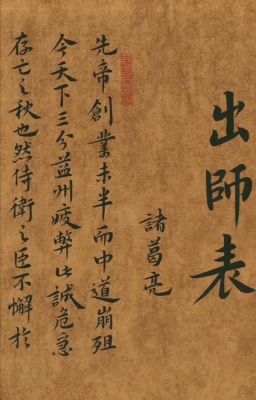 出師表
諸葛亮
先帝創業未半而中道崩殂
今天下三分益州疲弊此誠危急
存亡之秋也然侍衛之臣不懈於